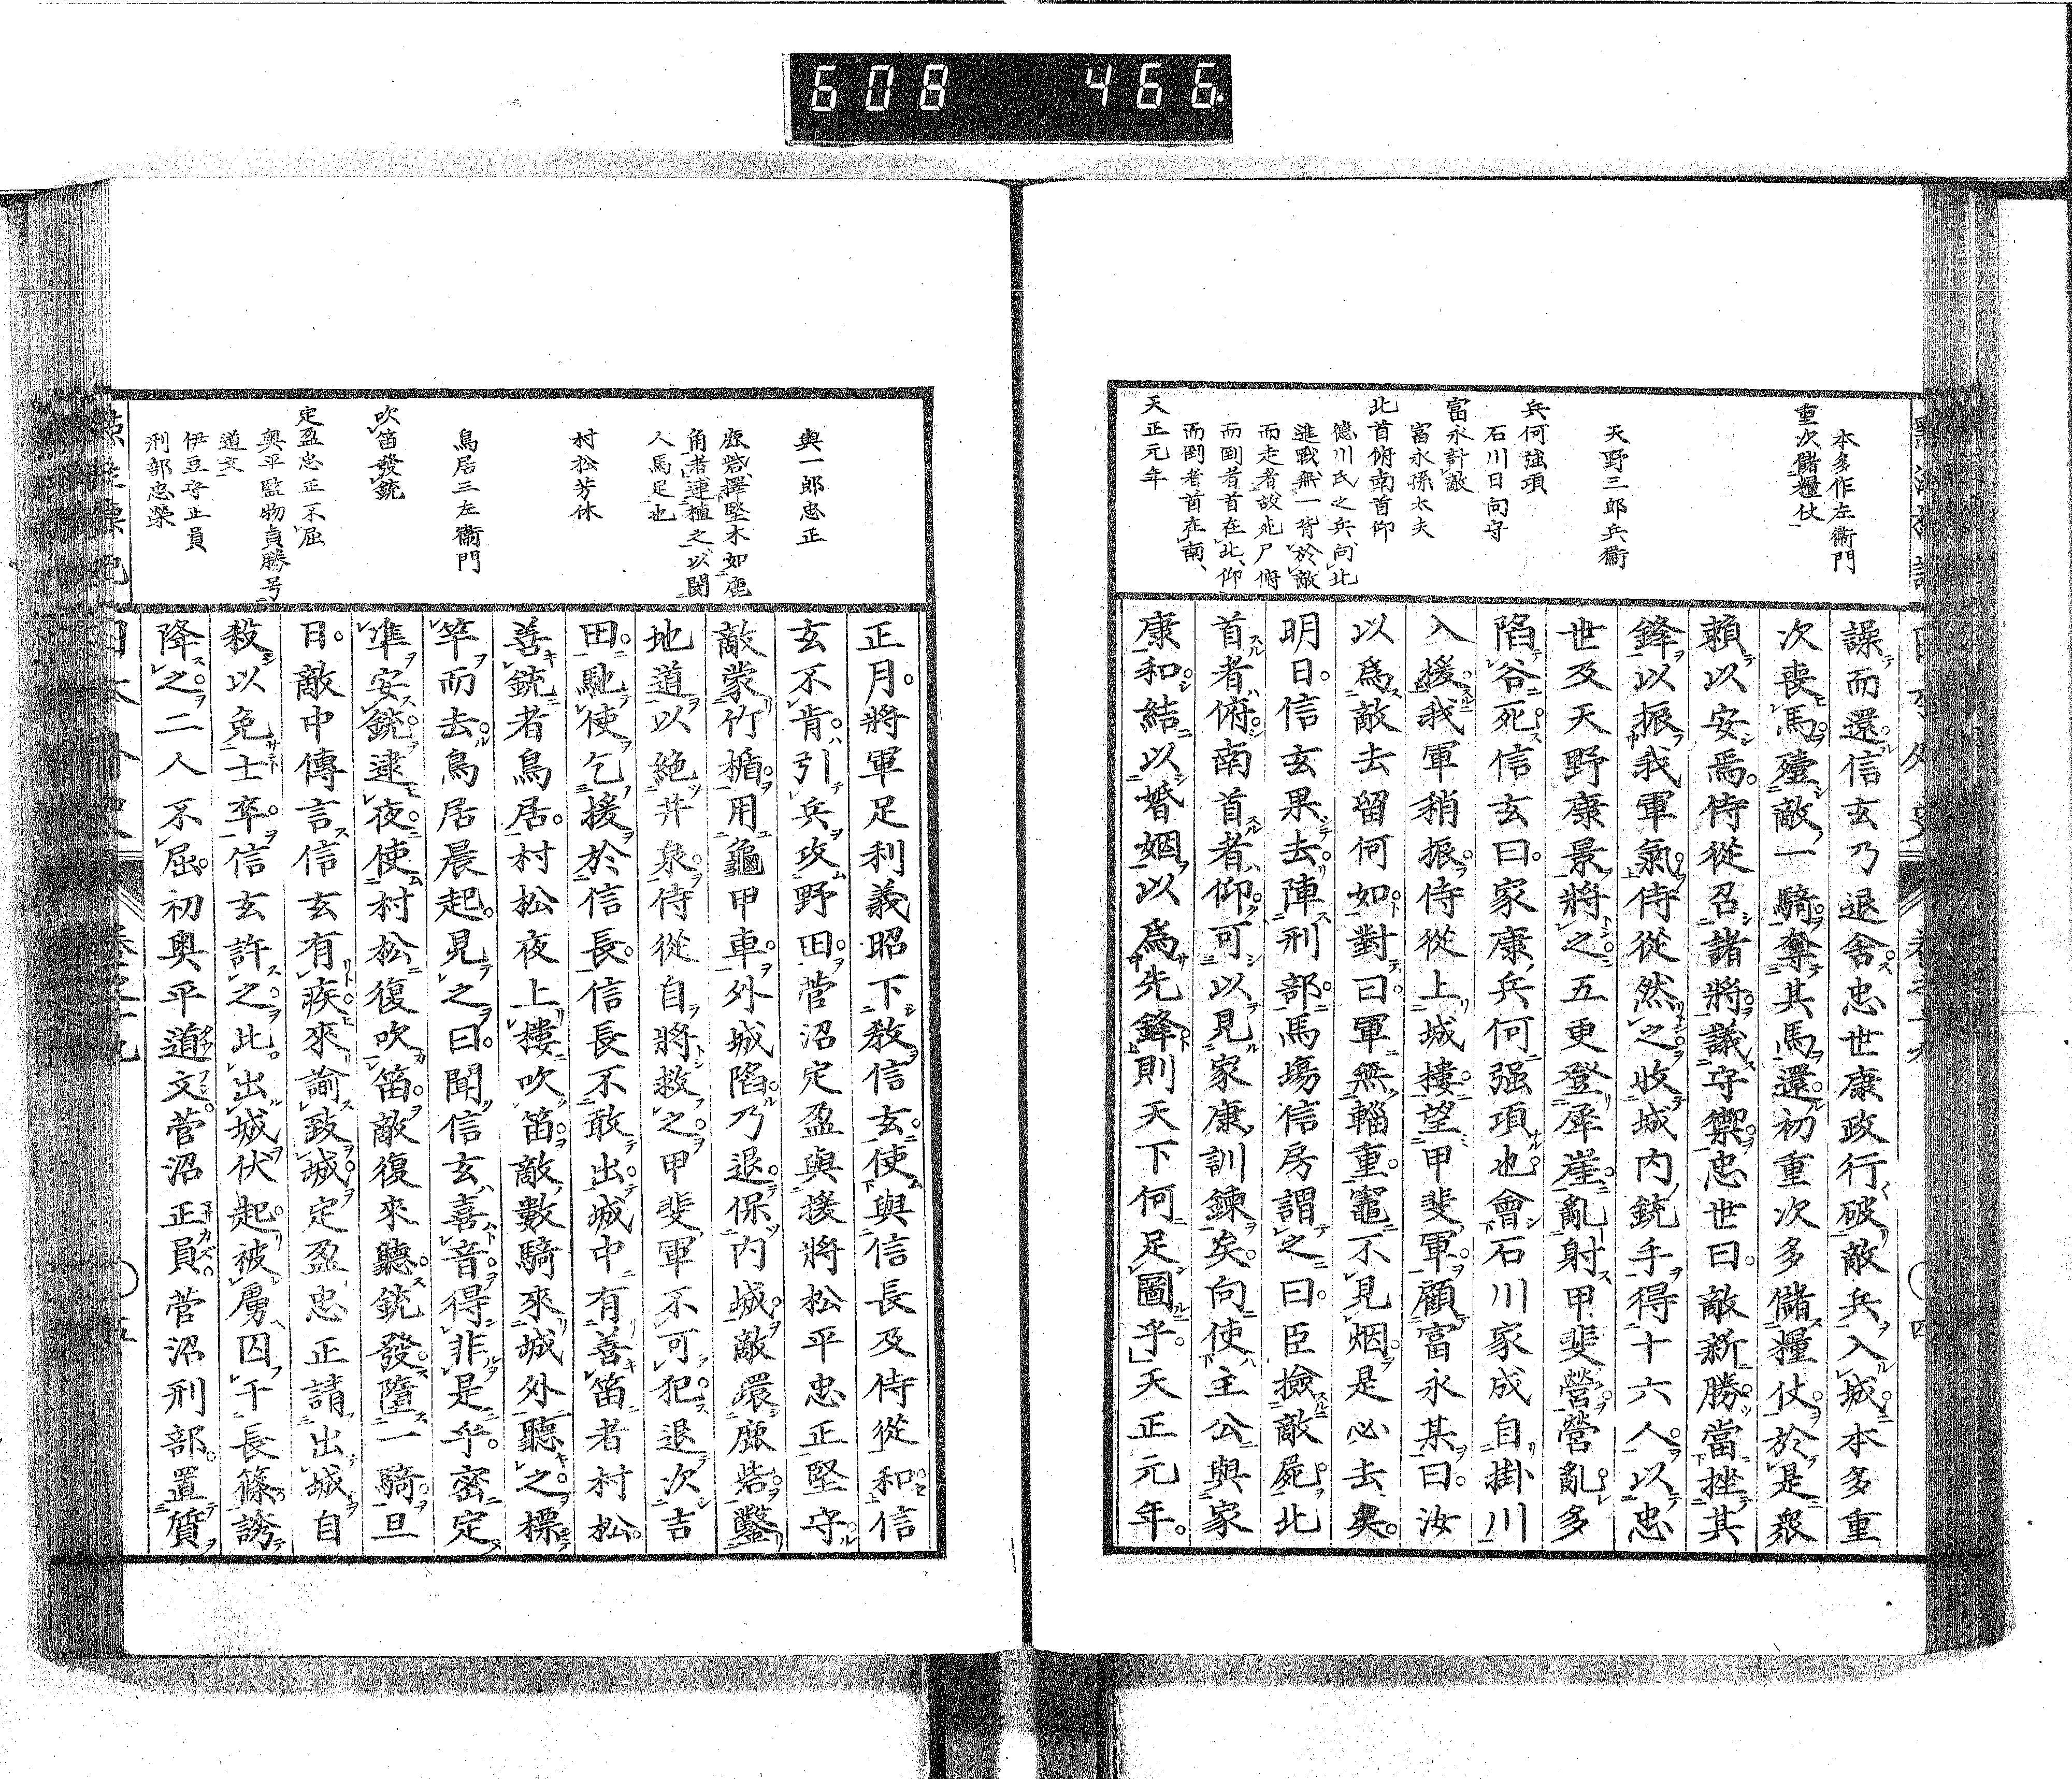 608 466
本多作左衞門
重次儲糧仗
天野三郎兵衞
兵何強項
石川日向守
富永計敵
富永孫太夫
北首俯南首仰
德川氏之兵向北
進戰無一背於敵
而走者故死尸俯
而倒者首在北仰
而倒者首在南
天正元年
譟而還信玄乃退舍忠世康政行破敵兵入城本多重
次喪馬殪敵一騎奪其馬還初重次多儲糧仗於是衆
賴以安焉侍從召諸將議守禦忠世曰敵新勝當挫其
鋒以振我軍氣侍從然之收城內銃手得十六人以忠
世及天野康景將之五更登犀崖亂射甲斐營營亂多
陷谷死信玄曰家康兵何强項也會石川家成自掛川
入援我軍稍振侍從上城樓望甲斐軍顧富永某曰汝
以爲敵去留何如對曰軍無輜重竈不見烟是必去矣
明日信玄果去陣刑部馬場信房謂之曰臣撿敵屍北
首者俯南首者仰可以見家康訓鍊矣向使主公與家
康和結以婚姻以爲先鋒則天下何足圖乎天正元年
四
與一郎忠正
鹿砦擇堅木如鹿
角者連植之以閡
人馬足也
村松芳休
鳥居三左衞門
吹笛發銃
定盈忠正不屈
奧平監物貞勝号
道文
伊豆守正員
刑部忠榮
正月將軍足利義昭下敎信玄使與信長及侍從和信
玄不肯引兵攻野田菅沼定盈與援將松平忠正堅守
敵蒙竹楯用龜甲車外城陷乃退保內城敵環鹿砦鑿
地道以絕井泉侍從自將救之甲斐軍不可犯退次吉
田馳使乞援於信長信長不敢出城中有善笛者村松
善銃者鳥居村松夜上樓吹笛敵數騎來城外聽之標
竿而去鳥居晨起見之曰聞信玄喜音得非是乎密定
準安銃逮夜使村松復吹笛敵復來聽銃發墮一騎旦
日敵中傳言信玄有疾來諭致城定盈忠正請出城自
殺以免士卒信玄許之此出城伏起被虜囚于長篠誘
降之二人不屈初奧平道文菅沼正員菅沼刑部置質
五